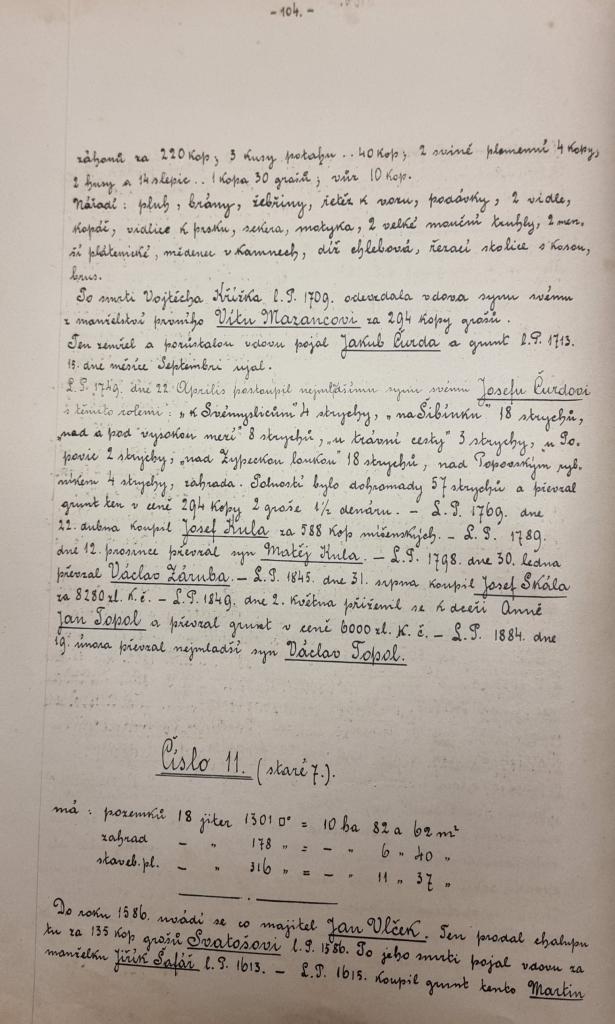 - 104. -
záhonů za 220 kop; 3 kusy potahu .. 40 kop; 2 svině plemenní 4 kopy,
2 husy a 14 slepic .. 1 kopa 30 grošů; vůz 10 kop.
Nářadí: pluh, brány, žebřiny, řetěz k vozu, podávky, 2 vidle,
kopáč, vidlice k prsku, sekera, motyka, 2 velké mouční truhly, 2 men-
ší plátenické, měděnec v kamnech, díž chlebová, řezací stolice s kosou,
brus.
Po smrti Vojtěcha Křížka l. P. 1709. odevzdala vdova synu svému
z manželství prvního Vítu Mazancovi za 294 kopy grošů.
Ten zemřel a pozůstalou vdovu pojal Jakub Čurda a grunt l. P. 1713.
15. dne měsíce Septembri ujal.
L. P. 1749. dne 22 Aprilis postoupil nejmladšímu synu svému Josefu Čurdovi
s těmito rolemi: „k Svémyslicům" 4 strychy, „na Šibínku" 18 strychů,
„nad a pod vysokou mezí" 8 strychů, „u trávní cesty" 3 strychy, „u Po-
povic 2 strychy, „nad Zypeckou loukou" 18 strychů, nad Popovským ryb-
níkem 4 strychy, zahrada. Polností bylo dohromady 57 strychů a převzal
grunt ten v ceně 294 kopy 2 groše 1½ denáru. - L. P. 1769. dne
22. dubna koupil Josef Kula za 588 kop míšenských. - L. P. 1789.
dne 12. prosince převzal syn Matěj Kula. - L. P. 1798. dne 30. ledna
převzal Václav Záruba. - L. P. 1845. dne 31. srpna koupil Josef Skála
za 8280 zl. K. č. - L. P. 1849. dne 2. května přiženil se k dceři Anně
Jan Topol a převzal grunt v ceně 6000 zl. K. č. - L. P. 1884. dne
19. února převzal nejmladší syn Václav Topol.
Číslo 11. (staré 7.).
má: pozemků 18 jiter 1301 □° = 10 ha 82 a 62 m²
zahrad - „ 178 „ = - „ 6 „ 40 „
staveb. pl. - „ 316 „ = - „ 11 „ 37 „
Do roku 1586. uvádí se co majitel Jan Vlček. Ten prodal chalupu
tu za 135 kop grošů Svatošovi l. P. 1586. Po jeho smrti pojal vdovu za
manželku Jiřík Šafář l. P. 1613. - L. P. 1615. koupil grunt tento Martin